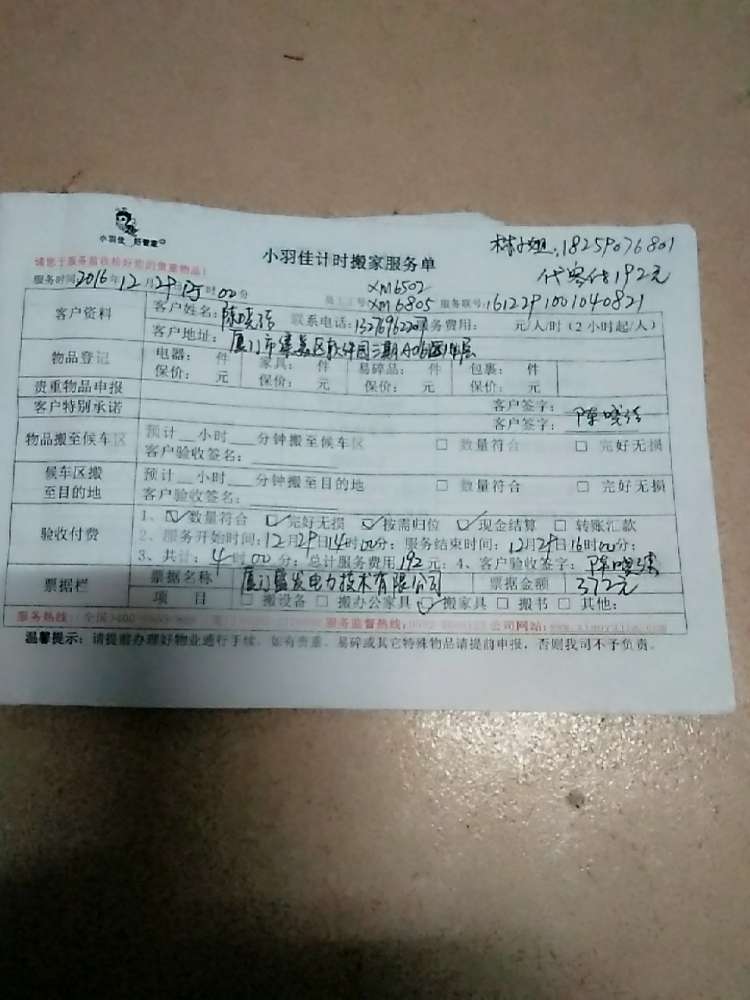 小羽佳 好管家
小羽佳计时搬家服务单
请您于服务前收检好您的贵重物品！
18259076801
代客付192元
服务时间2016年12月29日 时00分
XM6502
XM6805 服务联号:1612291001040821
客户资料
客户姓名:陈晓 联系电话: 服务费用: 元/人/时(2小时起/人)
客户地址:厦门市集美区软件园三期A06
物品登记
电器: 件 家具: 件 易碎品: 件 包裹: 件
保价: 元 保价: 元 保价: 元 保价: 元
贵重物品申报
客户签字:
客户特别承诺
客户签字: 陈晓
物品搬至候车区
预计__小时__分钟搬至候车区 □ 数量符合 □ 完好无损
客户验收签名:
候车区搬
至目的地
预计__小时__分钟搬至目的地 □ 数量符合 □ 完好无损
客户验收签名:
验收付费
1、☑数量符合 ☑完好无损 ☑按需归位 ☑现金结算 □ 转账汇款
2、服务开始时间:12月29日14时00分; 服务结束时间: 12月29日16时00分;
3、共计: 4时00分; 总计服务费用192元; 4、客户验收签字: 陈晓
票据栏
票据名称 厦门蓝发电力技术有限公司 票据金额 372元
项 目 □ 搬设备 □ 搬办公家具 ☑搬家具 □ 搬书 □ 其他:
服务热线: 全国 服务监督热线: 公司网站:
温馨提示: 请提前办理好物业通行手续。如有贵重、易碎或其它特殊物品请提前申报，否则我司不予负责。